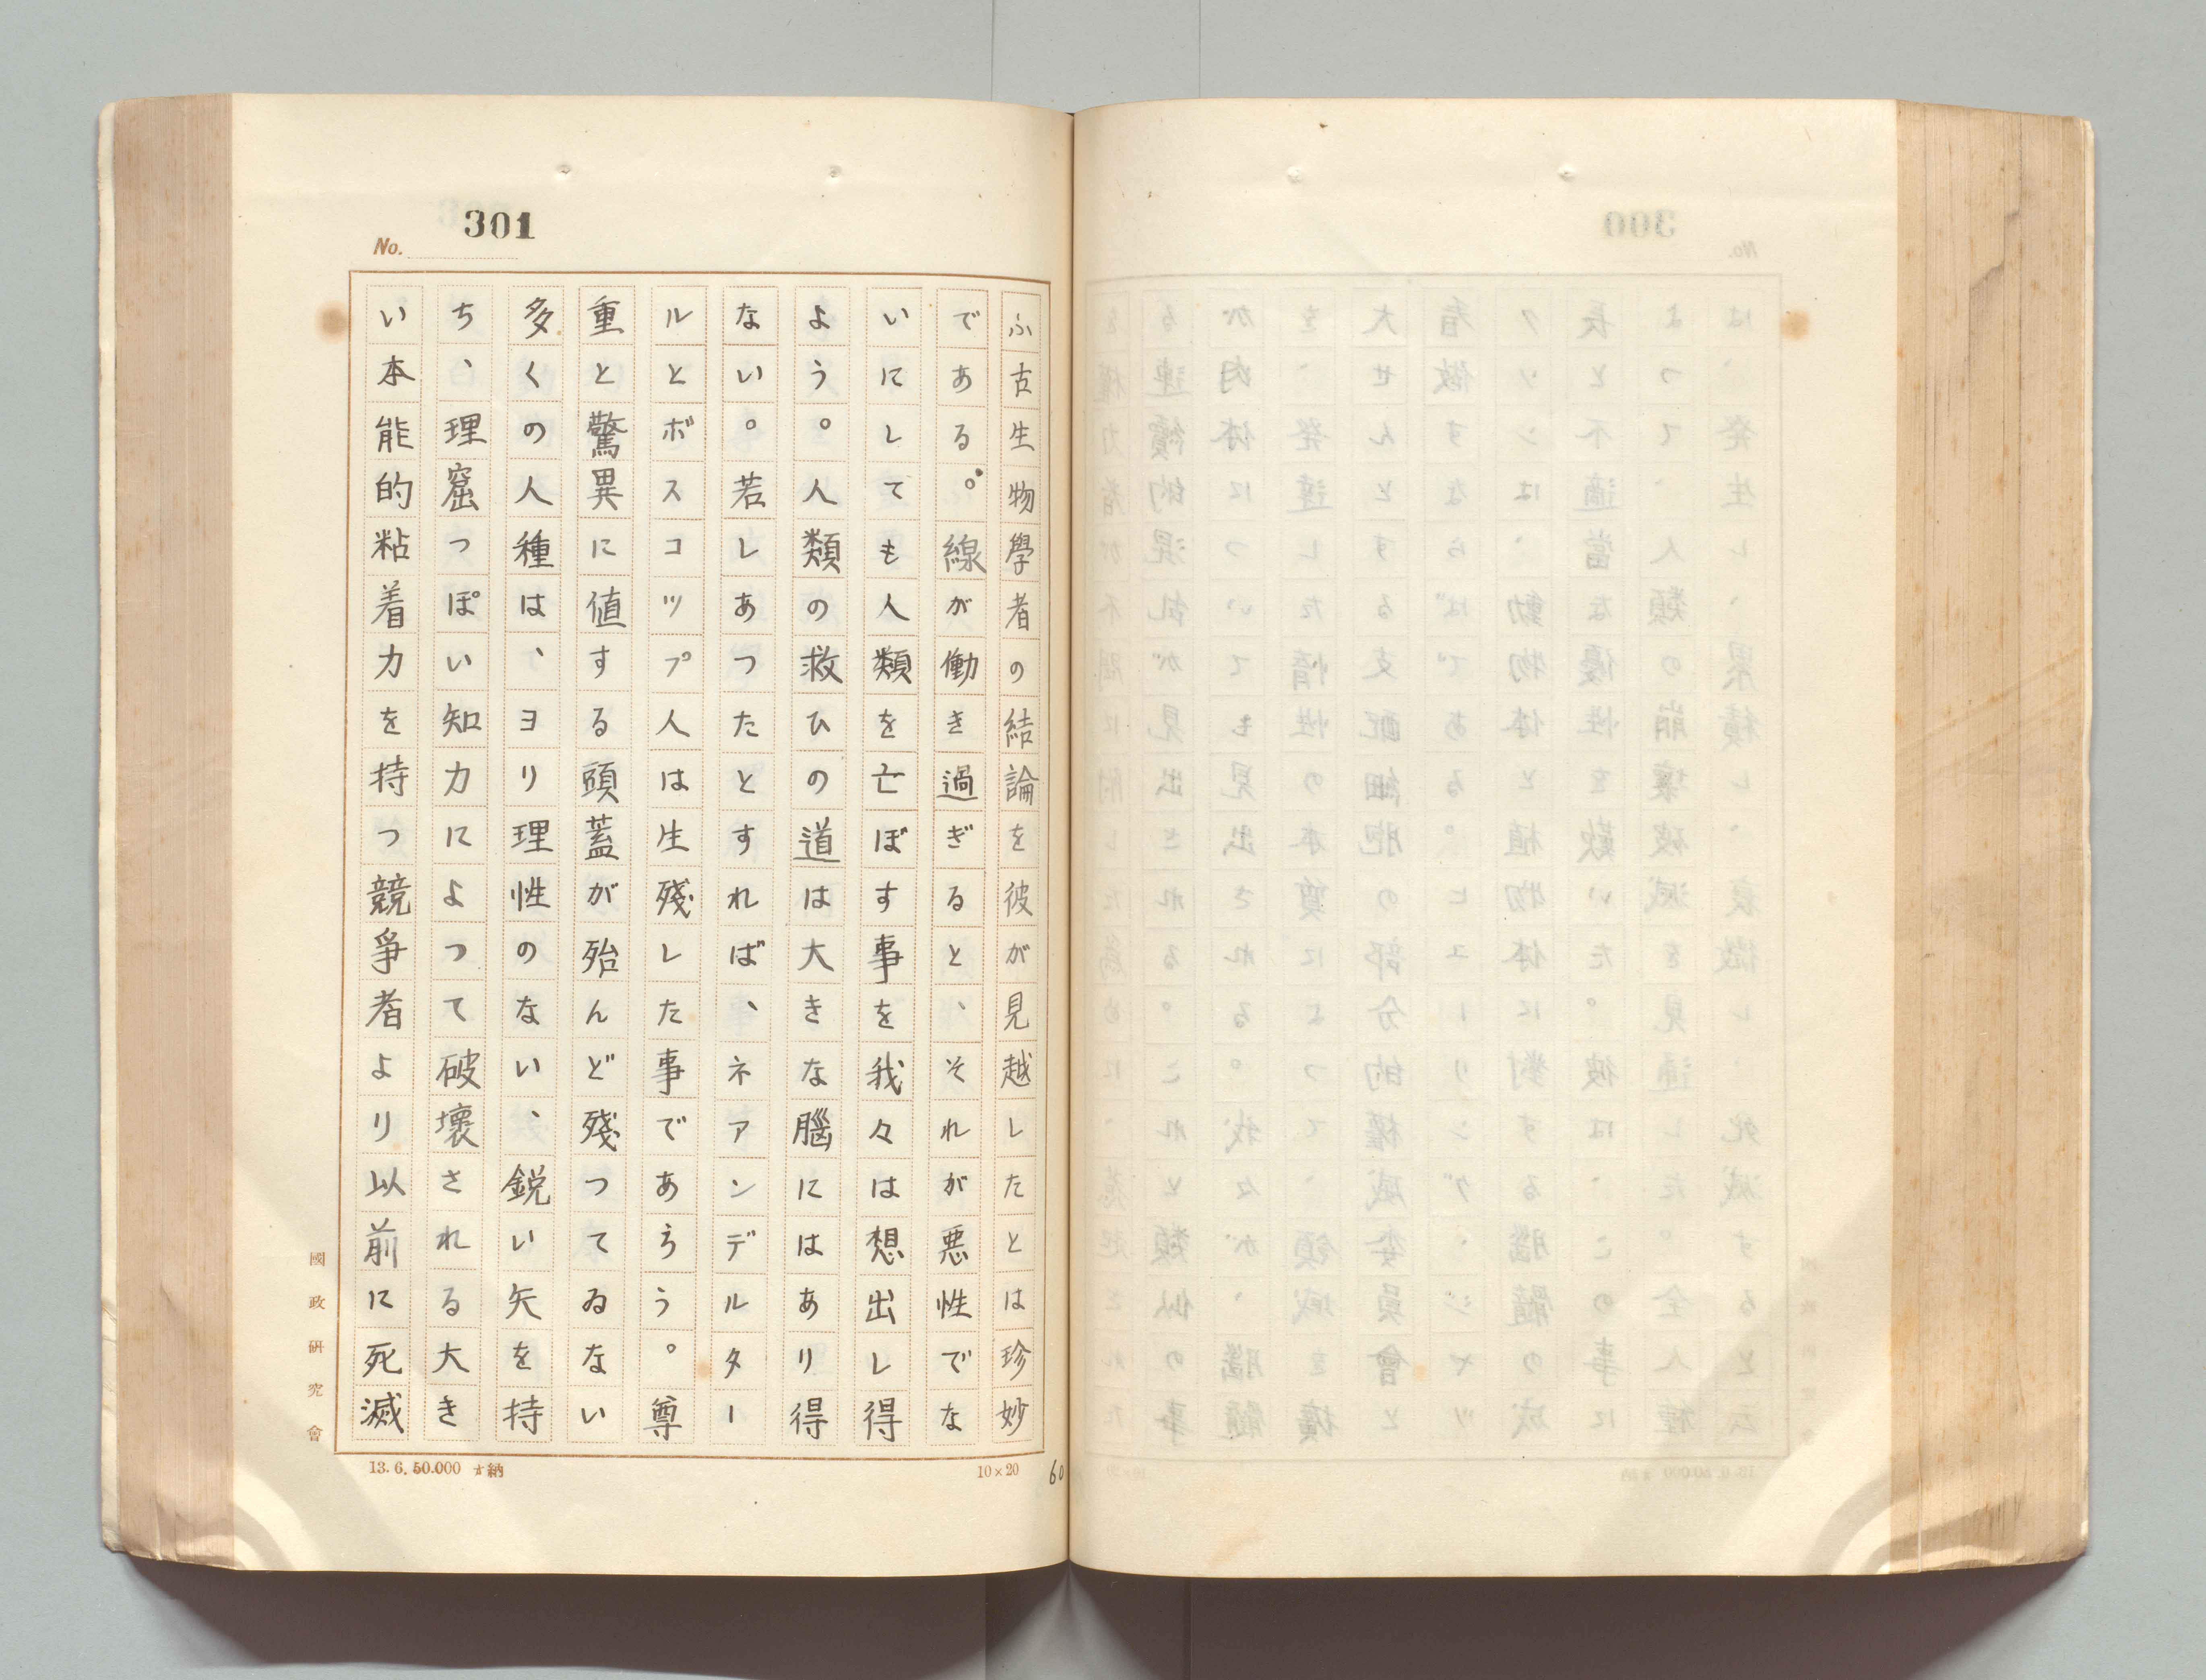 No. 301
ふ古生物學者の結論を彼が見越したとは珍妙
である。線が働き過ぎると、それが悪性でな
いにしても人類を亡ぼす事を我々は想出し得
よう。人類の救ひの道は大きな腦にはあり得
ない。若しあつたとすれば、ネアンデルター
ルとボスコツプ人は生殘した事であらう。尊
重と驚異に値する頭蓋が殆んど殘つてゐない
多くの人種は、ヨリ理性のない、鋭い矢を持
ち、理窟つぽい知力によつて破壞される大き
い本能的粘着力を持つ競爭者より以前に死滅
國政研究會
10×20
13.6.50.000 納
60